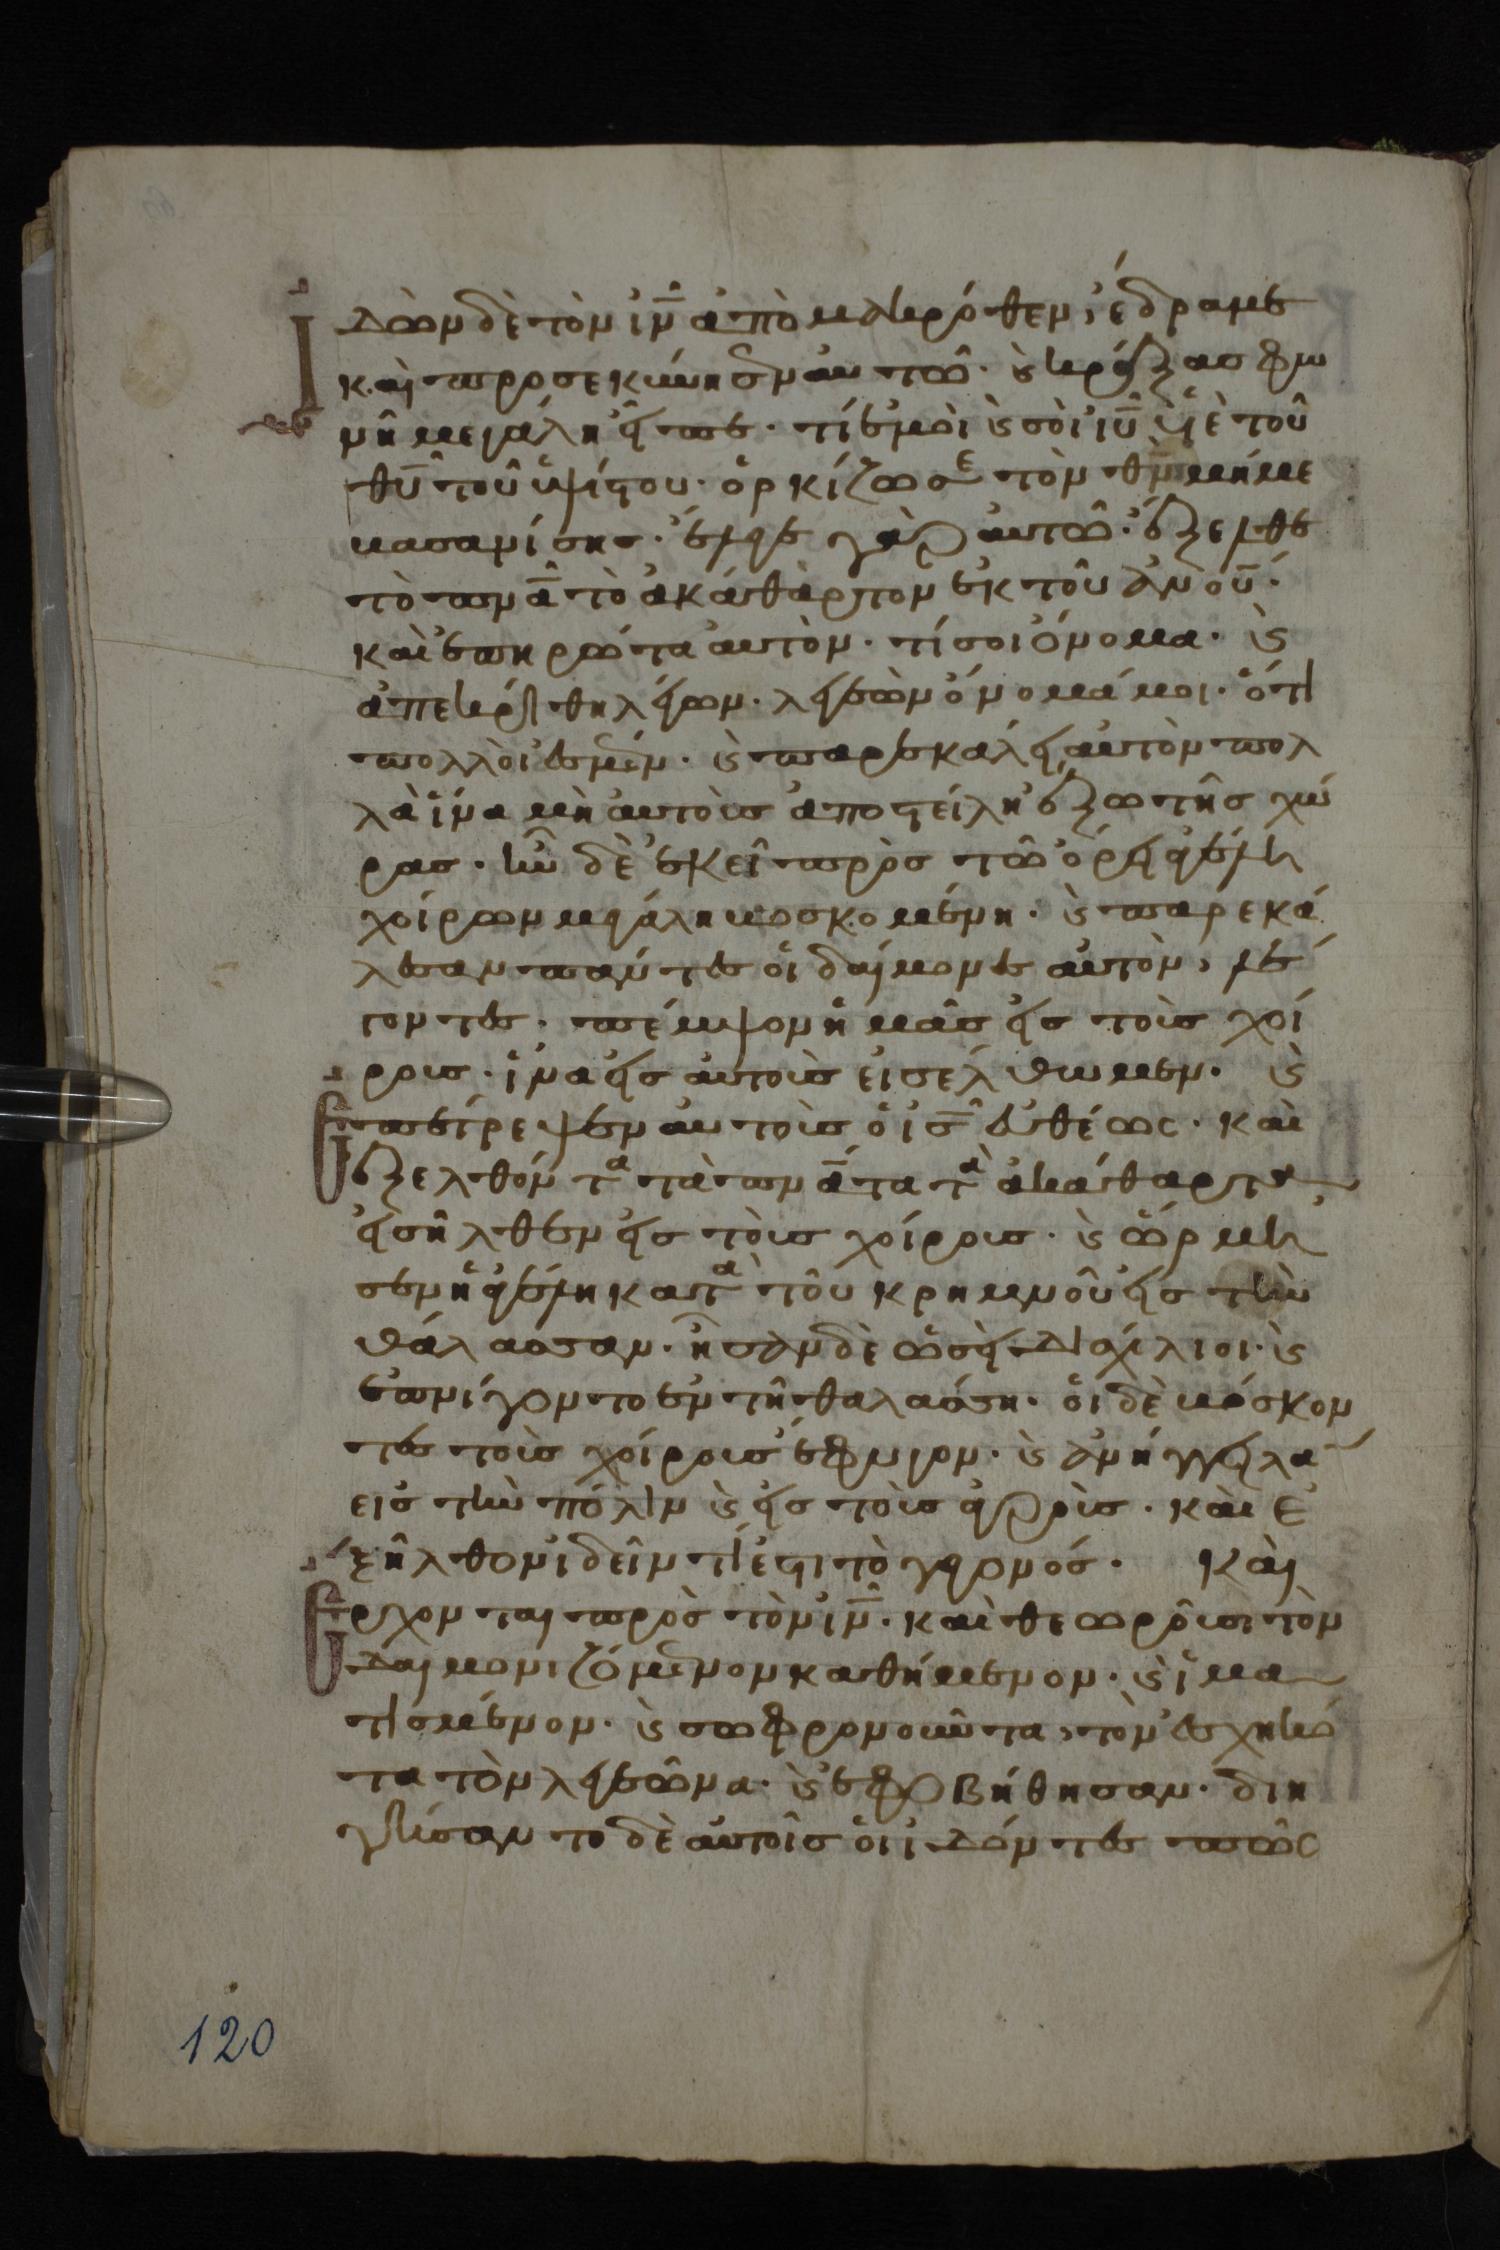 Ἰδὼν δὲ τὸν ιν̅ ἀπὸ μακρόθεν, ἔδραμε
καὶ προσεκύνησεν αὐτῶ· ϗ κράξας φω
νῆ μεγάλη εἶπε· τί ἐμοὶ ϗ σοὶ ιυ̅ υἱὲ τοῦ
θυ̅ τοῦ ὑψίστου· ὁρκίζω σε τὸν θν̅ μή με
βασανίσης· ἔλεγε γὰρ αὐτῶ· ἔξελθε
τὸ πνα̅ τὸ ἀκάθαρτον ἐκ τοῦ ἀνου̅·
καὶ ἐπηρώτα αὐτὸν· τί σοι ὄνομα· ϗ
ἀπεκρίθη λέγων· λεγεὼν ὄνομά μοι· ὅτι
πολλοί ἐσμεν· ϗ παρεκάλει αὐτὸν πολ
λὰ ἵνα μὴ αὐτοὺς ἀποστείλη ἔξω τῆς χώ
ρας· ἦν δὲ ἐκεῖ πρὸς τῶ ὄρει ἀγέλη
χοίρων μεγάλη βοσκομένη· ϗ παρεκά
λεσαν πάντες οἱ δαίμονες αὐτὸν, λέ
γοντες· πέμψον ἡμᾶς εἰς τοὺς χοί
ρους· ἵνα εἰς αὐτοὺς εἰσέλθωμεν· ϗ
ἐπέτρεψεν αὐτοὺς ὁ ισ̅ εὐθέως· καὶ
ἐξελθόντα τὰ πνα̅τα τὰ ἀκάθαρτα
εἰσῆλθεν εἰς τοὺς χοίρους· ϗ ὥρμη
σεν ἡ ἀγέλη κατὰ τοῦ κρημνοῦ εἰς τὴν
θάλασσαν· ἦσαν δὲ ὡσεὶ δισχίλιοι· ϗ
ἐπνίγοντο ἐν τῆ θαλάσση· οἱ δὲ βόσκον
τες τοὺς χοίρους ἔφυγον· ϗ ἀνήγγειλαν
εἰς τὴν πόλιν ϗ εἰς τοὺς ἀγρούς· καὶ ἐ
ξῆλθον ἰδεῖν τί ἐστι τὸ γεγονός· Καὶ
ἔρχονται πρὸς τὸν ιν̅· καὶ θεωροῦσι τὸν
δαιμονιζόμενον καθήμενον· ϗ ἱμα
τισμένον· ϗ σωφρονοῦντα, τὸν ἐσχηκό
τα τὸν λεγεῶνα· ϗ ἐφοβήθησαν· διη
γήσαντο δὲ αὐτοῖς οἱ ἰδόντες πῶς
120